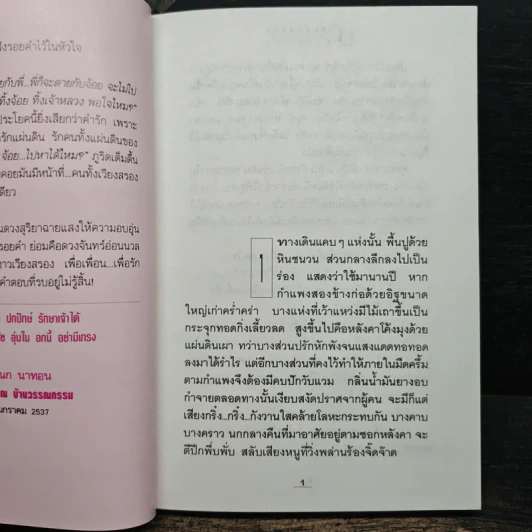 งรอยคำไว้ในหัวใจ
ยกับพี่...พี่ก็จะตายกับจ้อย จะไม่ไป
ทิ้งจ้อย ทิ้งเจ้าหลวง พอใจไหม?"
ประโยคนี้ยิ่งเสียกว่าคำรัก เพราะ
รักแผ่นดิน รักคนทั้งแผ่นดินของ
จ้อย...ไปหาได้ไหม?" ภูริตเต็มตื้น
คอยมันมีหน้าที่...คนทั้งเวียงสรอง
เดียว
นดวงสุริยาฉายแสงให้ความอบอุ่น
รอยคำ ย่อมคือดวงจันทร์อ่อนนวล
าวเวียงสรอง เพื่อเพื่อน...เพื่อรัก
คำตอบที่รบอยู่ไม่รู้สิ้น!
ปกปักษ์ รักษาเจ้าได้
อุ่นใน อกนี้ อย่ามีเกรง
นก นาทอน
ณ บ้านวรรณกรรม
กราคม 2537
๑
ทางเดินแคบๆ แห่งนั้น พื้นปูด้วย
หินชนวน ส่วนกลางลึกลงไปเป็น
ร่อง แสดงว่าใช้มานานปี หาก
กำแพงสองข้างก่อด้วยอิฐขนาด
ใหญ่เก่าคร่ำคร่า บางแห่งที่เว้าแหว่งมีไม้เถาขึ้นเป็น
กระจุกทอดกิ่งเลี้ยวลด สูงขึ้นไปคือหลังคาโค้งมุงด้วย
แผ่นดินเผา ทว่าบางส่วนปรักหักพังจนแสงแดดทอทอด
ลงมาได้รำไร แต่อีกบางส่วนที่คงไว้ทำให้ภายในมืดครึ้ม
ตามกำแพงจึงต้องมีคบปักวับแวม กลิ่นน้ำมันยางอบ
กำจายตลอดทางนั้นเงียบสงัดปราศจากผู้คน จะมีก็แต่
เสียงกริ่ง...กริ๋ง...กังวานใสคล้ายโลหะกระทบกัน บางคาบ
บางคราว นกกลางคืนที่มาอาศัยอยู่ตามซอกหลังคา จะ
ตีปีกพึ่บพั่บ สลับเสียงหนูที่วิ่งพล่านร้องจี๊ดจ๊าด
๑